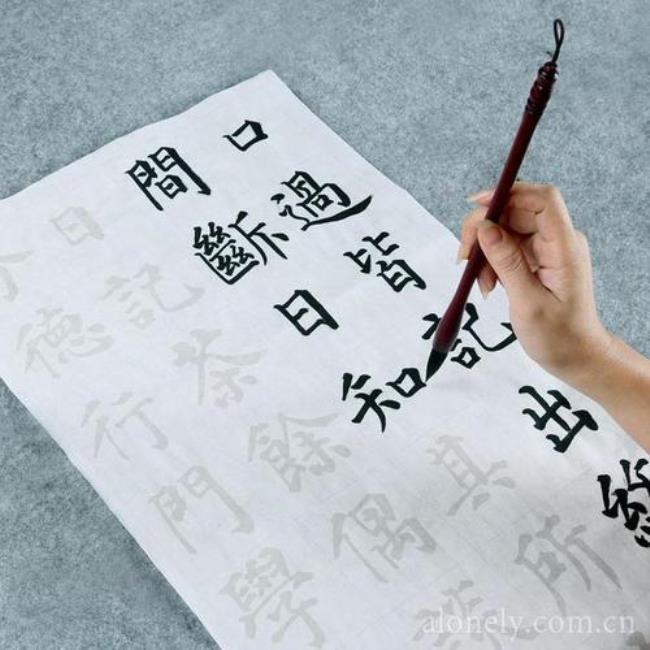 口過皆記出終
間斷日知其所
日記茶餘偶談
分德行門學
alonely.com.cn